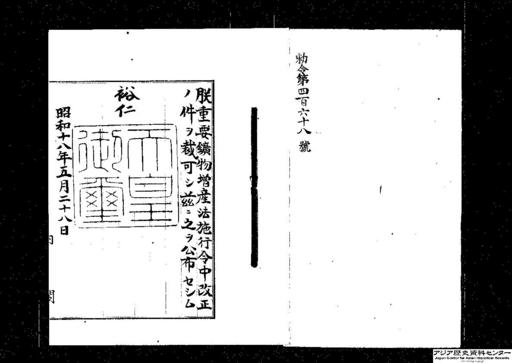 勅令第四百六十八號
朕重要鑛物增産法施行令中改正
ノ件ヲ裁可シ茲ニ之ヲ公布セシム
裕仁
天皇御璽
昭和十八年五月二十八日
内閣
アジア歴史資料センター
Japan Center for Asian Historical Records